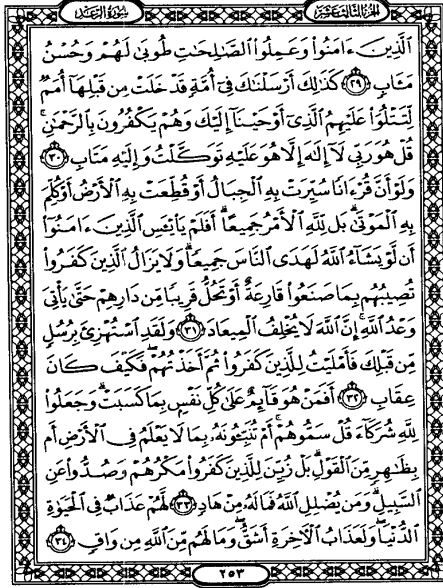 الجزء الثالث عشر
سورة الرعد
الَّذِينَ ءَامَنُوا۟ وَعَمِلُوا۟ الصَّـٰلِحَـٰتِ طُوبَىٰ لَهُمْ وَحُسْنُ
مَـَٔابٍ ٢٩ كَذَٰلِكَ أَرْسَلْنَـٰكَ فِىٓ أُمَّةٍ قَدْ خَلَتْ مِن قَبْلِهَآ أُمَمٌ
لِّتَتْلُوَا۟ عَلَيْهِمُ الَّذِىٓ أَوْحَيْنَآ إِلَيْكَ وَهُمْ يَكْفُرُونَ بِالرَّحْمَـٰنِ ۚ
قُلْ هُوَ رَبِّى لَآ إِلَـٰهَ إِلَّا هُوَ عَلَيْهِ تَوَكَّلْتُ وَإِلَيْهِ مَتَابِ ٣٠
وَلَوْ أَنَّ قُرْءَانًا سُيِّرَتْ بِهِ الْجِبَالُ أَوْ قُطِّعَتْ بِهِ الْأَرْضُ أَوْ كُلِّمَ
بِهِ الْمَوْتَىٰ ۗ بَل لِّلَّهِ الْأَمْرُ جَمِيعًا ۗ أَفَلَمْ يَا۟يْـَٔسِ الَّذِينَ ءَامَنُوٓا۟
أَن لَّوْ يَشَآءُ اللَّهُ لَهَدَى النَّاسَ جَمِيعًا ۗ وَلَا يَزَالُ الَّذِينَ كَفَرُوا۟
تُصِيبُهُم بِمَا صَنَعُوا۟ قَارِعَةٌ أَوْ تَحُلُّ قَرِيبًا مِّن دَارِهِمْ حَتَّىٰ يَأْتِىَ
وَعْدُ اللَّهِ ۚ إِنَّ اللَّهَ لَا يُخْلِفُ الْمِيعَادَ ٣١ وَلَقَدِ اسْتُهْزِئَ بِرُسُلٍ
مِّن قَبْلِكَ فَأَمْلَيْتُ لِلَّذِينَ كَفَرُوا۟ ثُمَّ أَخَذْتُهُمْ ۖ فَكَيْفَ كَانَ
عِقَابِ ٣٢ أَفَمَنْ هُوَ قَآئِمٌ عَلَىٰ كُلِّ نَفْسٍۭ بِمَا كَسَبَتْ ۗ وَجَعَلُوا۟
لِلَّهِ شُرَكَآءَ قُلْ سَمُّوهُمْ ۚ أَمْ تُنَبِّـُٔونَهُۥ بِمَا لَا يَعْلَمُ فِى الْأَرْضِ أَم
بِظَـٰهِرٍ مِّنَ الْقَوْلِ ۗ بَلْ زُيِّنَ لِلَّذِينَ كَفَرُوا۟ مَكْرُهُمْ وَصُدُّوا۟ عَنِ
السَّبِيلِ ۗ وَمَن يُضْلِلِ اللَّهُ فَمَا لَهُۥ مِنْ هَادٍ ٣٣ لَّهُمْ عَذَابٌ فِى الْحَيَوٰةِ
الدُّنْيَا ۖ وَلَعَذَابُ الْـَٔاخِرَةِ أَشَقُّ ۖ وَمَا لَهُم مِّنَ اللَّهِ مِن وَاقٍ ٣٤
٢٥٣